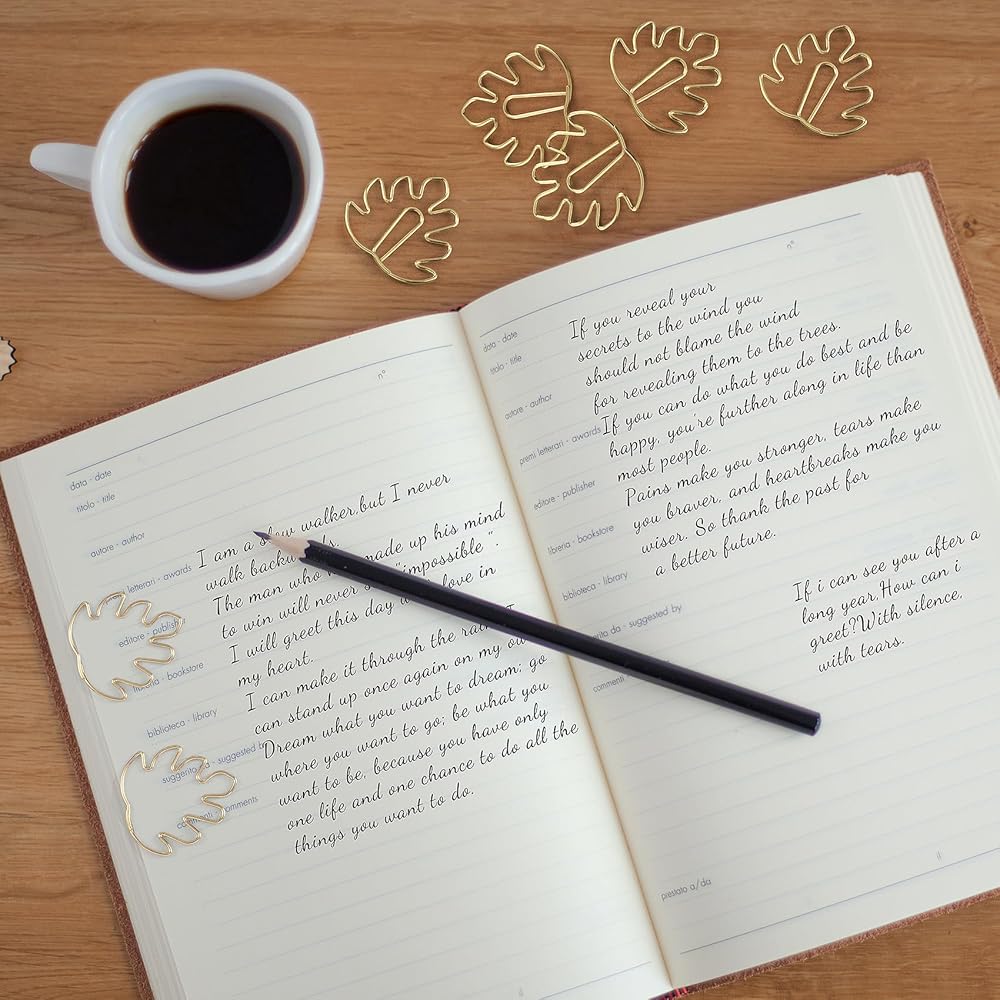 n°
data - date
titolo - title
autore - author
letterari - awards
editore - publish
- bookstore
biblioteca - library
suggerito da - suggested by
comments
I am a slow walker,but I never
walk
The man who made up his mind
to win will never "impossible ".
I will greet this day love in
my heart.
I can make it through the I
can stand up once again on my
Dream what you want to dream; go
where you want to go; be what you
want to be, because you have only
one life and one chance to do all the
things you want to do.
n°
data - date
titolo - title
autore - author
premi letterari - awards
editore - publisher
libreria - bookstore
biblioteca - library
da - suggested by
commenti
If you reveal your
secrets to the wind you
should not blame the wind
for revealing them to the trees.
If you can do what you do best and be
happy, you're further along in life than
most people.
Pains make you stronger, tears make
you braver, and heartbreaks make you
wiser. So thank the past for
a better future.
If i can see you after a
long year,How can i
greet?With silence,
with tears.
prestato a/da
il